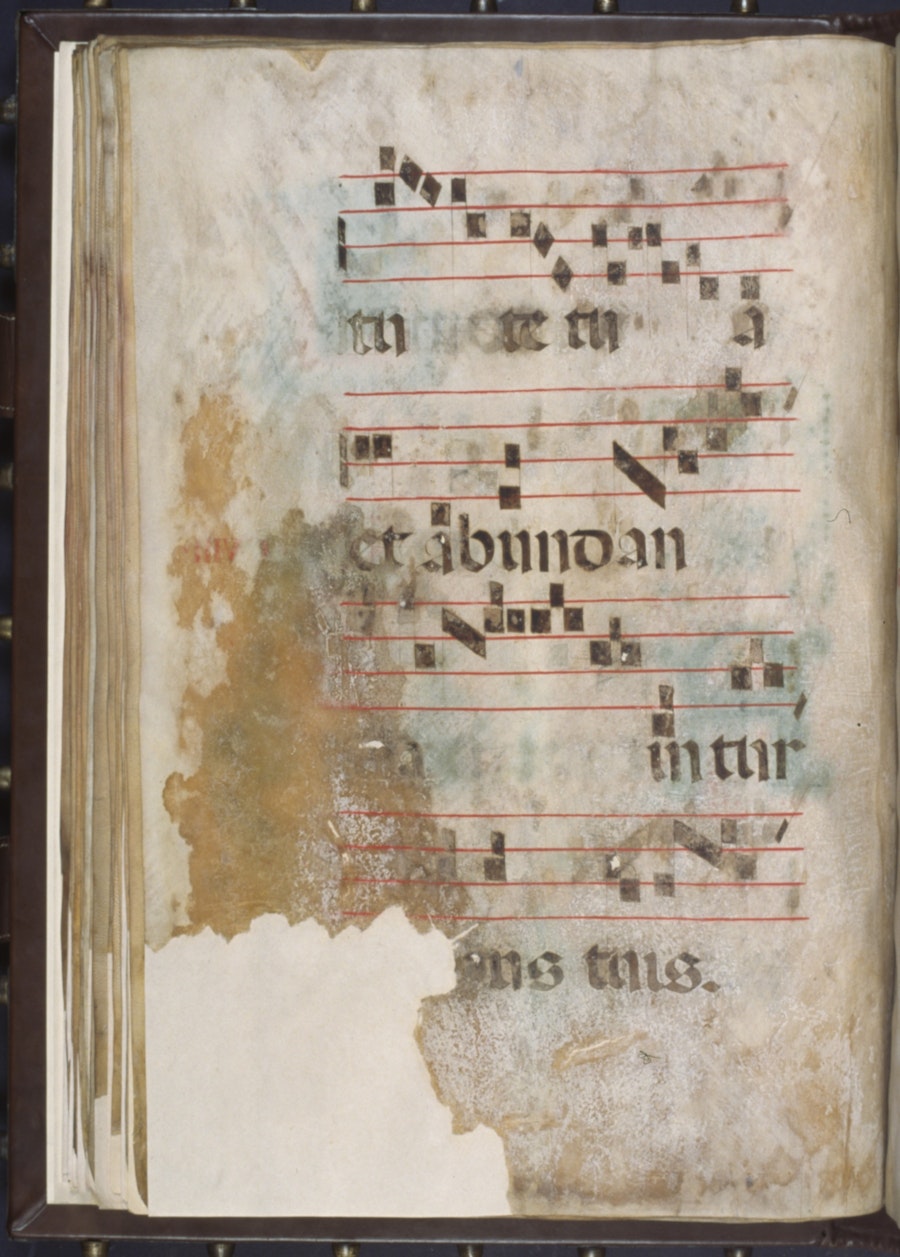 tu te tu a
et abundan
a in tur
bus tuis.